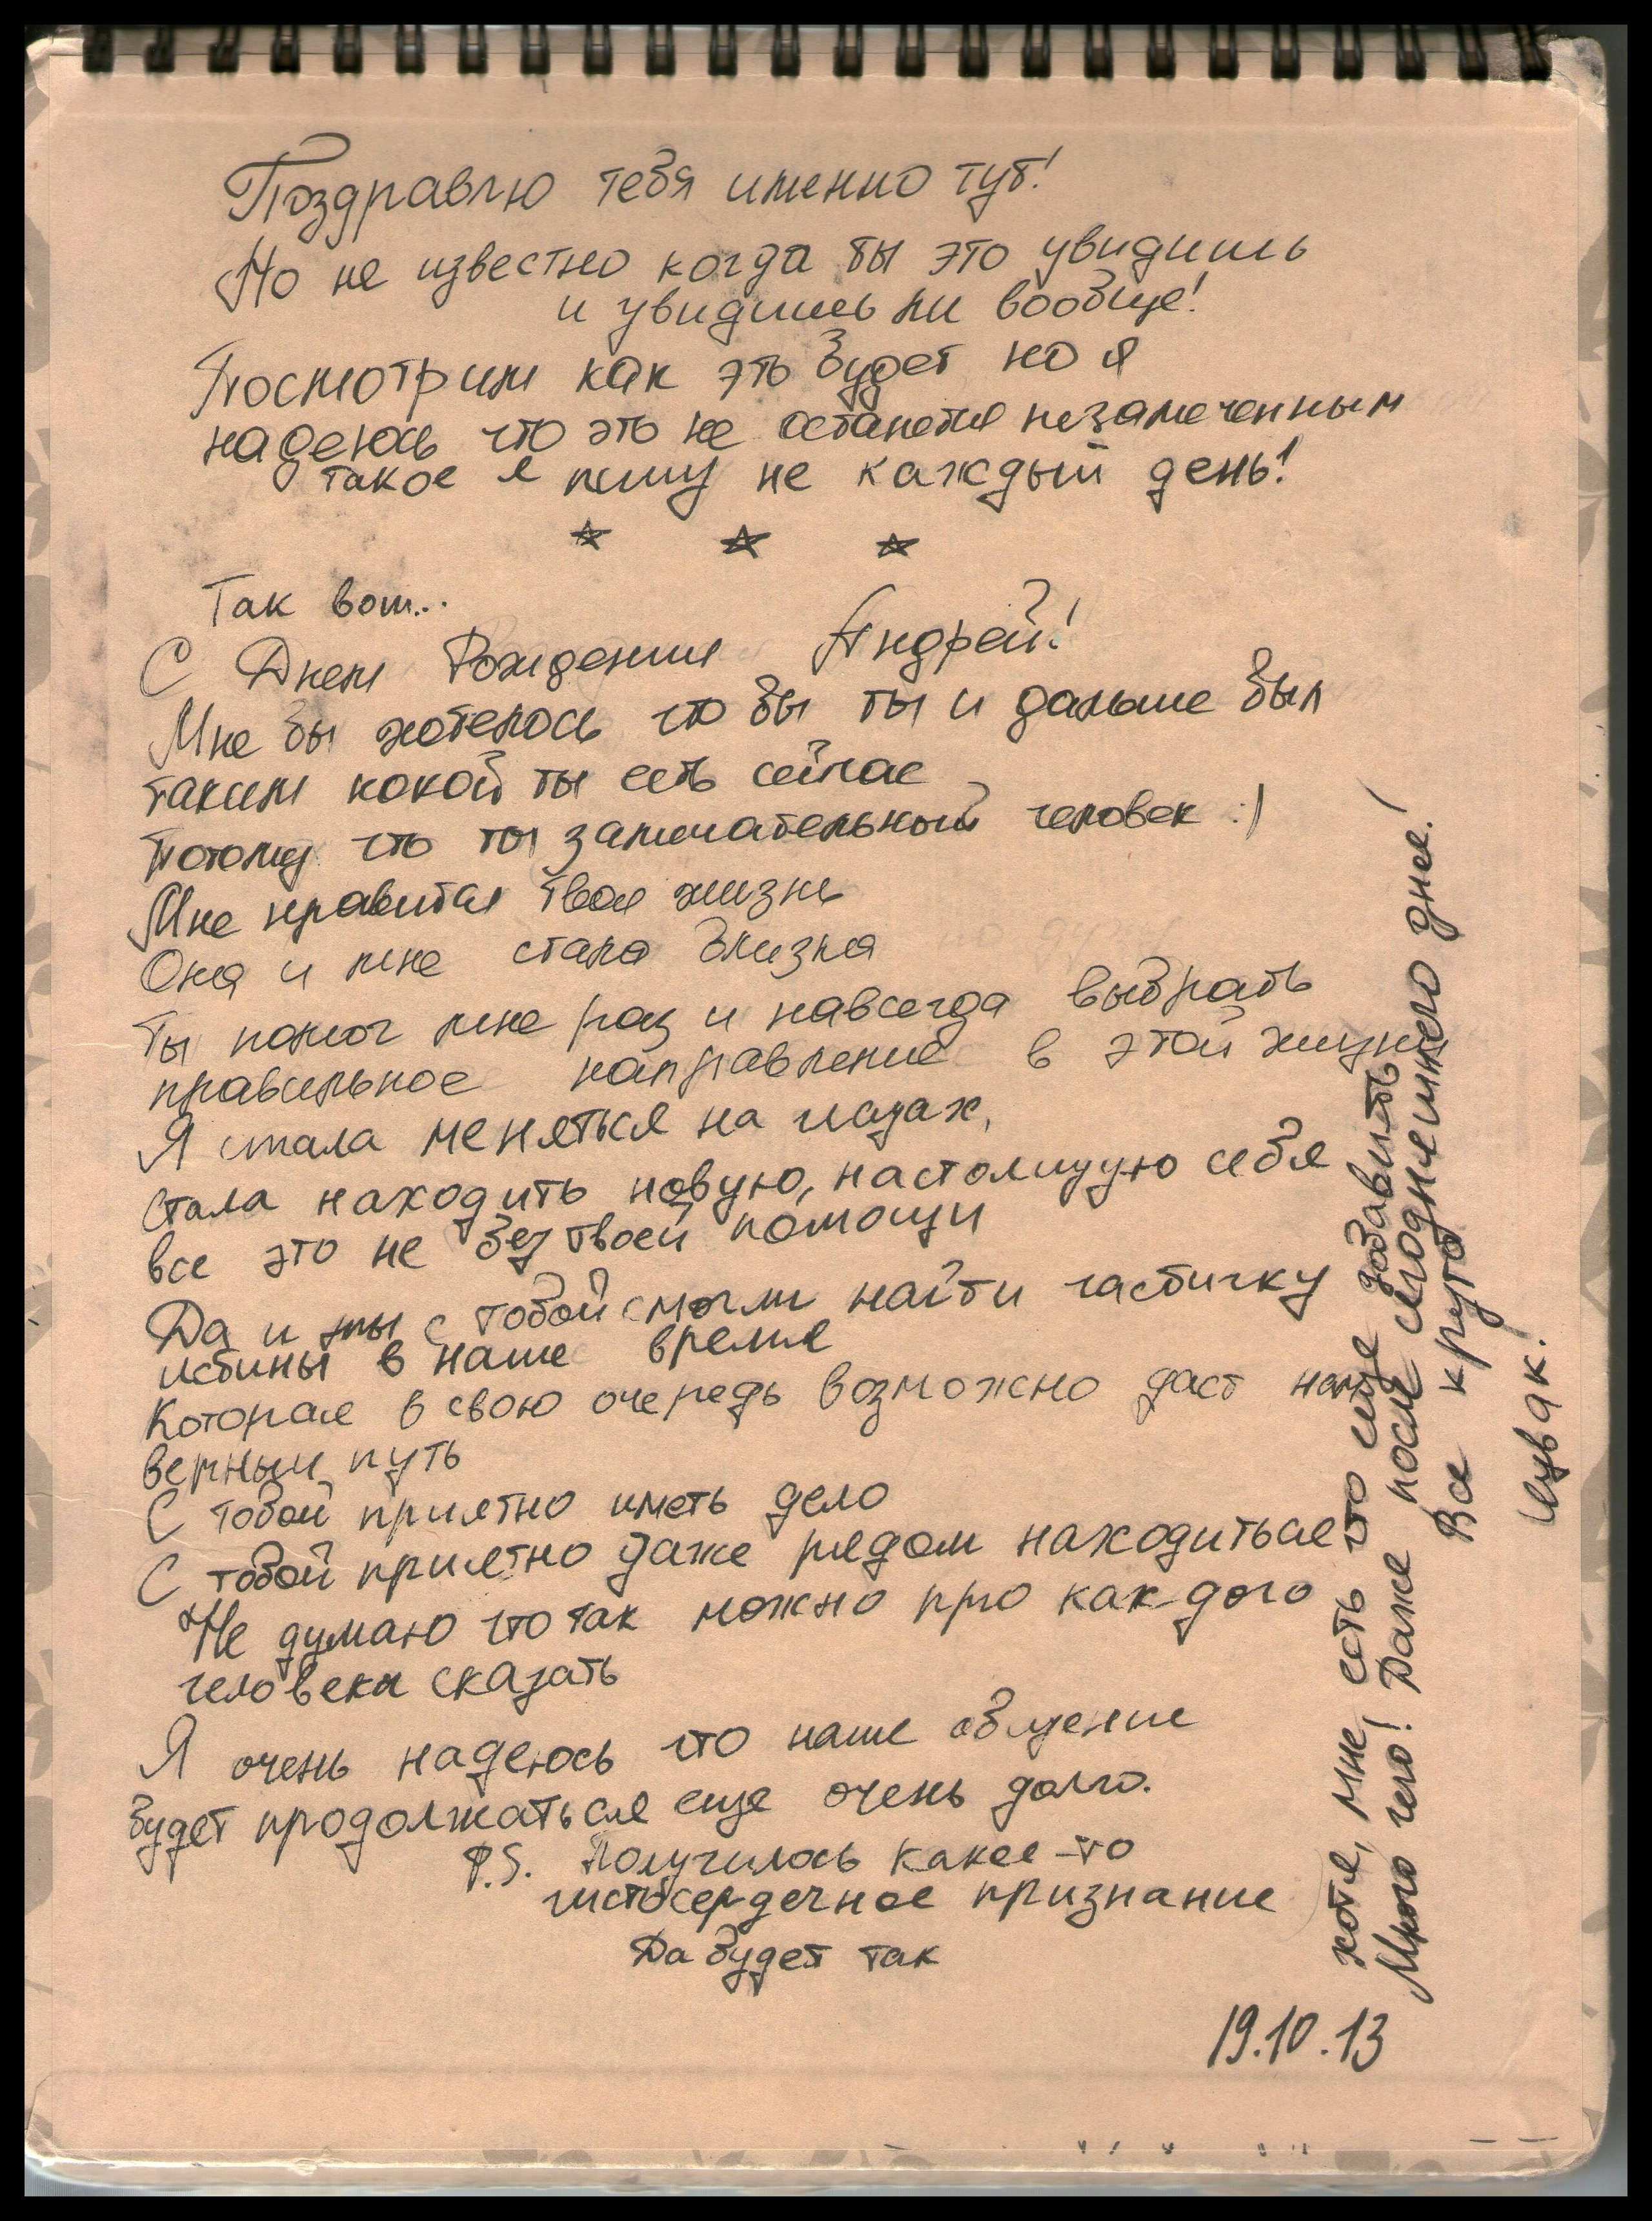 Поздравлю тебя именно тут!
Но не известно когда ты это увидишь
и увидишь ли вообще!
Посмотрим как это будет но я
надеюсь что это не останется незамеченным
такое я пишу не каждый день!
☆ ☆ ☆
Так вот...
С Днем Рождения Андрей!
Мне бы хотелось что бы ты и дальше был
таким какой ты есть сейчас
Потому что ты замечательный человек :)
Мне нравится твоя жизнь
Она и мне стала близка
Ты помог мне раз и навсегда выбрать
правильное направление в этой жизни
Я стала меняться на глазах,
стала находить новую, настоящую себя
все это не без твоей помощи
Да и мы с тобой смогли найти частичку
истины в наше время
Которая в свою очередь возможно даст нам
верный путь
С тобой приятно иметь дело
С тобой приятно даже рядом находиться
Не думаю что так можно про каждого
человека сказать
Я очень надеюсь что наше общение
будет продолжаться еще очень долго.
P.S. Получилось какое-то
чистосердечное признание
Да будет так
19.10.13
хотя, мне есть что еще добавить
Много чего! Даже после сегодняшнего дня!
Все круто
Чувак!